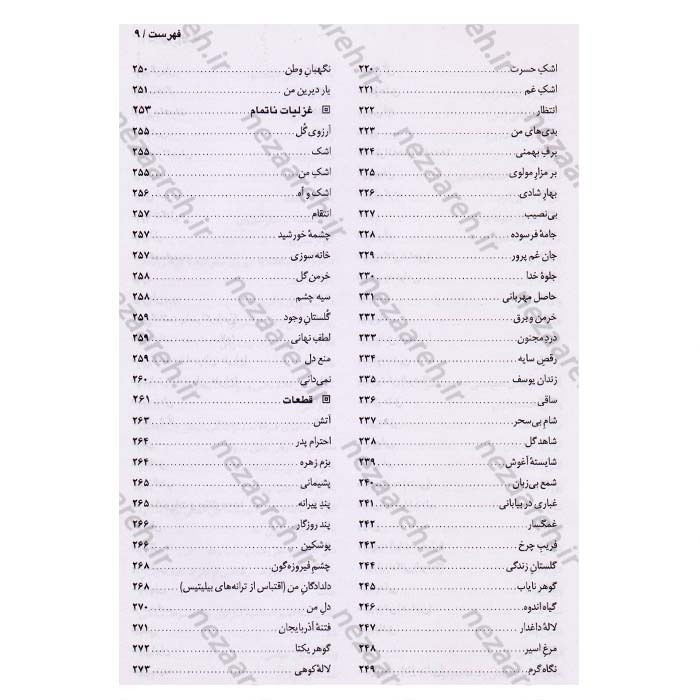 فهرست / ۹
اشکِ حسرت ۲۲۰
اشکِ غم ۲۲۱
انتظار ۲۲۲
بدی‌های من ۲۲۳
برفِ بهمنی ۲۲۴
بر مزارِ مولوی ۲۲۵
بهارِ شادی ۲۲۶
بی‌نصیب ۲۲۷
جامهٔ فرسوده ۲۲۸
جان غم پرور ۲۲۹
جلوهٔ خدا ۲۳۰
حاصل مهربانی ۲۳۱
خرمن و برق ۲۳۲
دردِ مجنون ۲۳۳
رقصِ سایه ۲۳۴
زندان یوسف ۲۳۵
ساقی ۲۳۶
شامِ بی‌سحر ۲۳۷
شاهد گل ۲۳۸
شایستهٔ آغوش ۲۳۹
شمع بی‌زبان ۲۴۰
غباری در بیابانی ۲۴۱
غمگسار ۲۴۲
فریبِ چرخ ۲۴۳
گلستانِ زندگی ۲۴۴
گوهر نایاب ۲۴۵
گیاه اندوه ۲۴۶
لالهٔ داغدار ۲۴۷
مرغ اسیر ۲۴۸
نگاه گرم ۲۴۹
نگهبانِ وطن ۲۵۰
یار دیرین من ۲۵۱
غزلیات ناتمام ۲۵۳
آرزوی گُل ۲۵۵
اشک ۲۵۵
اشکِ من ۲۵۵
اشک و آه ۲۵۶
انتقام ۲۵۷
چشمهٔ خورشید ۲۵۷
خانه سوزی ۲۵۷
خرمن گل ۲۵۸
سیه چشم ۲۵۸
گُلستانِ وجود ۲۵۹
لطفِ نهانی ۲۵۹
منع دل ۲۵۹
نمی‌دانی ۲۶۰
قطعات ۲۶۱
آتش ۲۶۳
احترام پدر ۲۶۴
بزم زهره ۲۶۴
پشیمانی ۲۶۵
پندِ پیرانه ۲۶۵
پند روزگار ۲۶۶
پوشکین ۲۶۶
چشمِ فیروزه‌گون ۲۶۸
دلدادگانِ من (اقتباس از ترانه‌های بیلیتیس) ۲۶۸
دلِ من ۲۷۰
فتنهٔ آذربایجان ۲۷۱
گوهر یکتا ۲۷۲
لالهٔ کوهی ۲۷۳
nezaareh.ir